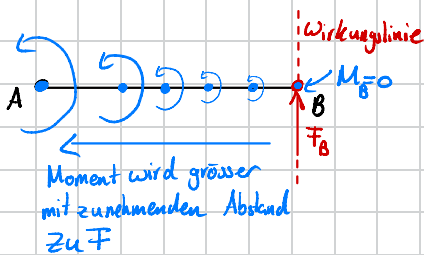 Wirkungslinie
M_B=0
A
B
F_B
Moment wird grösser
mit zunehmenden Abstand
zu F